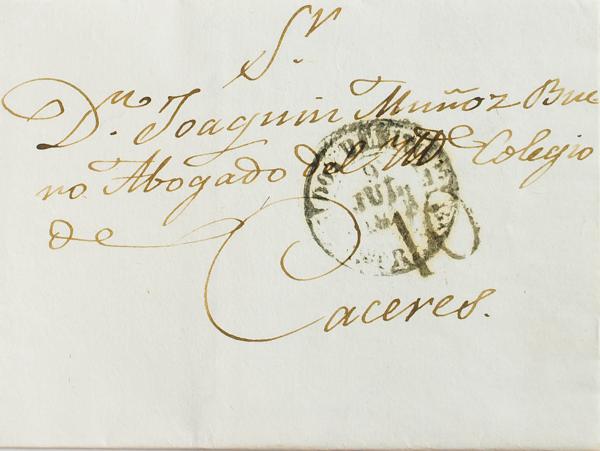 Sr
Dn. Joaquin Muñoz Bue
no Abogado del Colegio
de
Caceres.
JUL